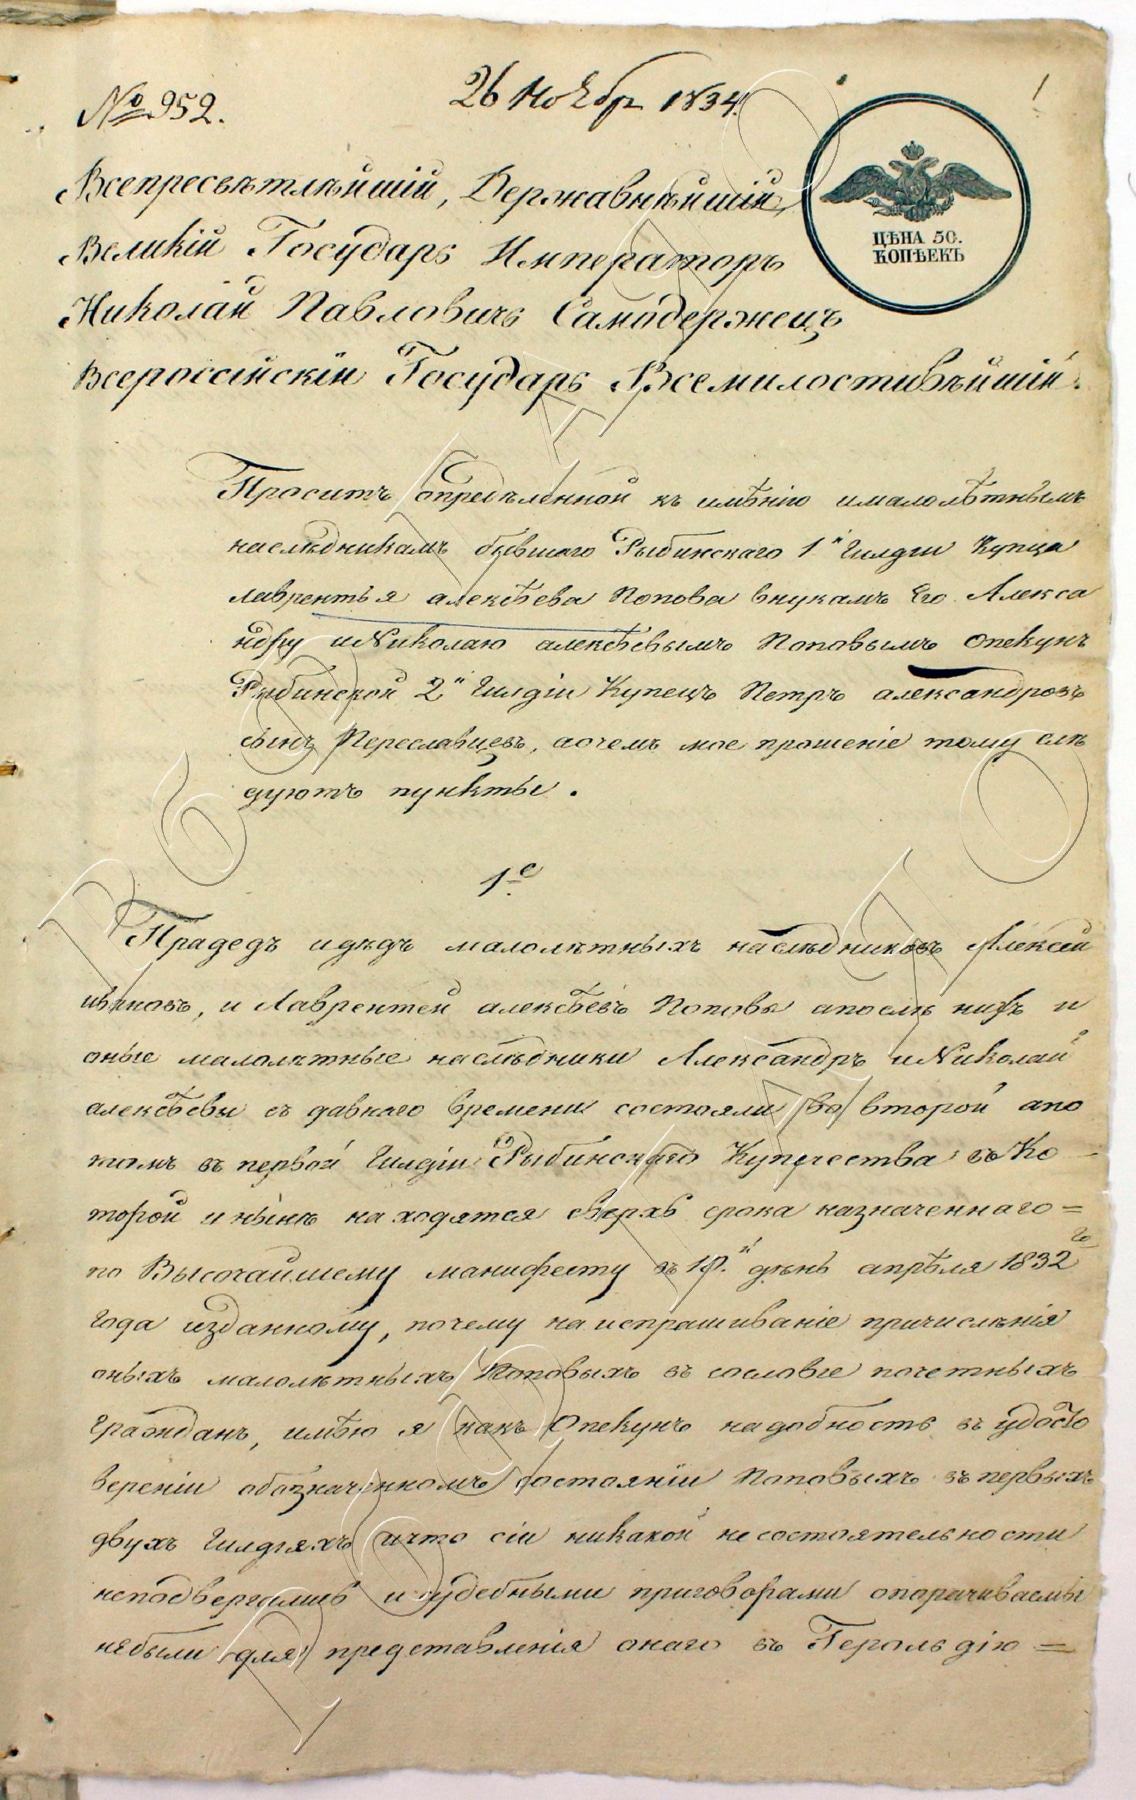 № 952.
26 Ноябр 1834.
1
ЦѢНА 50.
КОПѢЕКЪ
Всепресвѣтлѣйшій, Державнѣйшій
Великій Государь Императоръ
Николай Павловичъ Самодержецъ
Всероссійскій Государь Всемилостивѣйшій.
Проситъ опредѣленной къ имѣнію ималолѣтнымъ
наслѣдникамъ бывшаго Рыбинскаго 1й Гилдіи Купца
лаврентья алексѣева Попова внукамъ Его Алекса
ндру иНиколаю алексѣевымъ Поповымъ Опекунъ
Рыбинской 2й Гилдіи Купецъ Петръ александровъ
сынъ Переславцевъ, аочемъ мое прошеніе тому слѣ
дуютъ пункты.
1е
Прадедъ идѣдъ малолѣтныхъ наслѣдниковъ Алексей
ивановъ, и Лаврентей алексѣевъ Поповы апослѣ нихъ и
оные малолѣтные наслѣдники Александръ иНиколай
алексѣевы съ давнаго времени состояли во второй апо
томъ въ первой Гилдіи Рыбинскаго Купечества въ Ко
торой и нынѣ находятся сверхъ срока назначеннаго=
по Высочайшему манифесту въ 10й день апрѣля 1832го
года изданному, почему на испрашиваніе причислѣнія
оныхъ малолѣтныхъ Поповыхъ въ сословіе почетныхъ
гражданъ, имѣю я какъ Опекунъ надобность въ удосто
вереніи обозначенномъ состояніи Поповыхъ въ первыхъ
двухъ Гилдіяхъ ичто сіи никакой несостоятельности
неподвергались и судебными приговорами опорачиваемы
небыли для представленія онаго въ Герольдію=